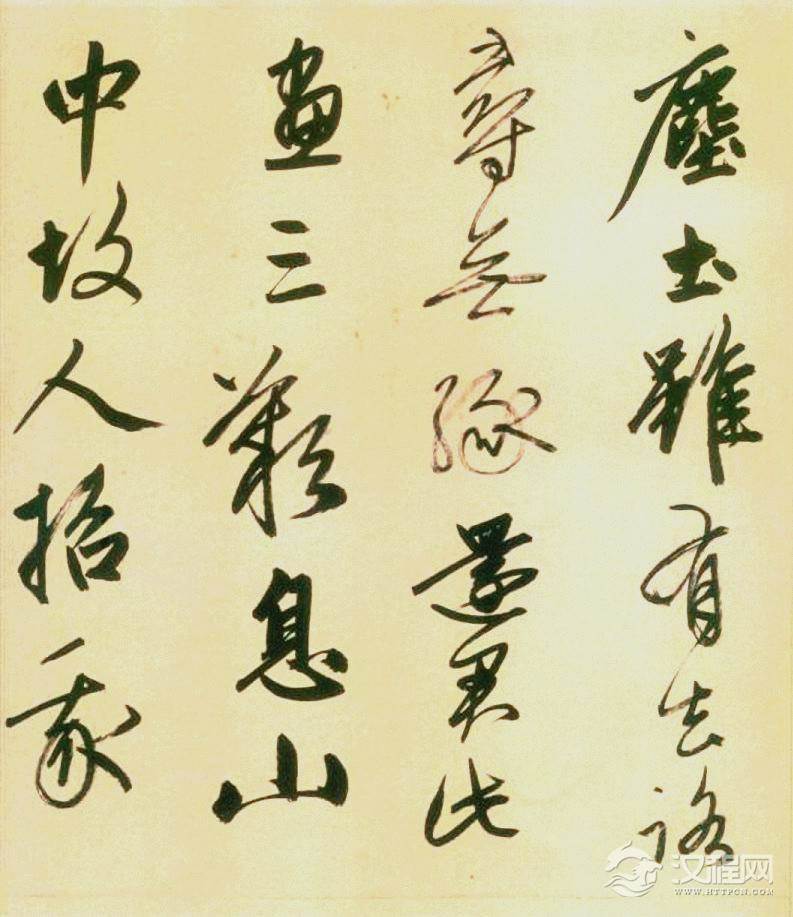 塵土雖有去路
尋無緣還君此
畫三歎息山
中故人招我
汉程网
WWW.HTTPCN.COM